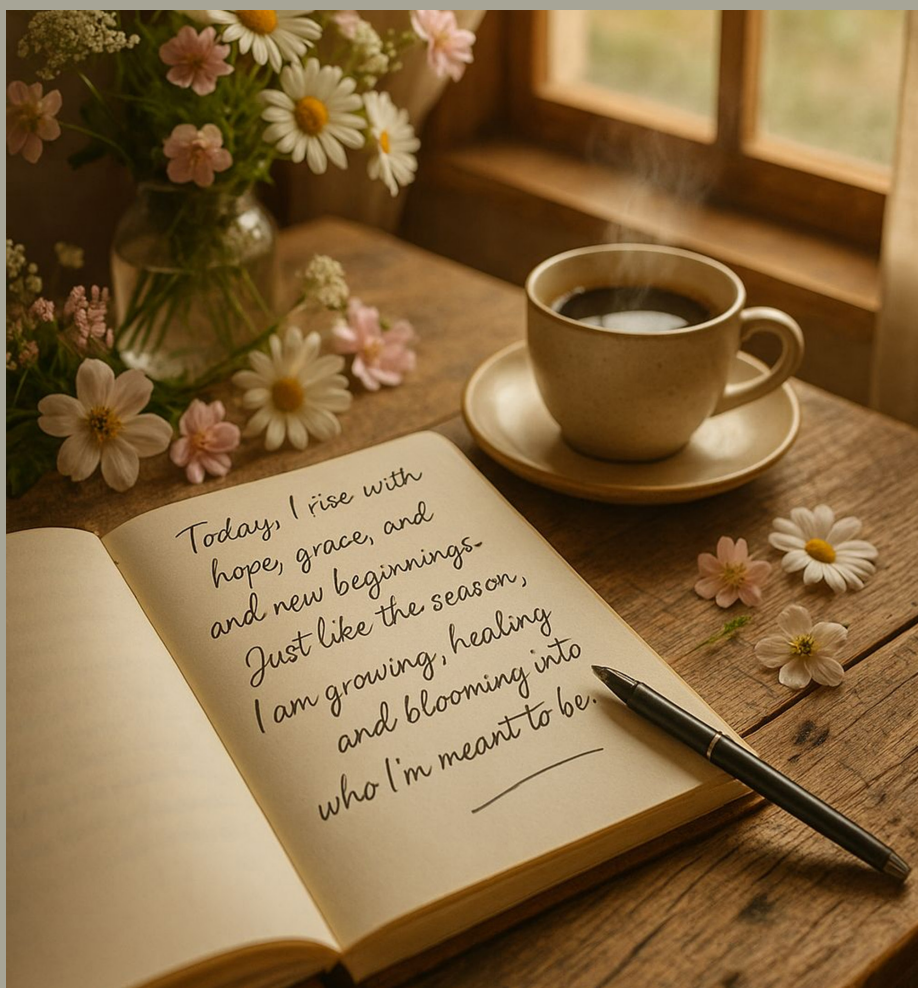 Today, I rise with
hope, grace, and
and new beginnings.
Just like the season,
I am growing, healing
and blooming into
who I'm meant to be.